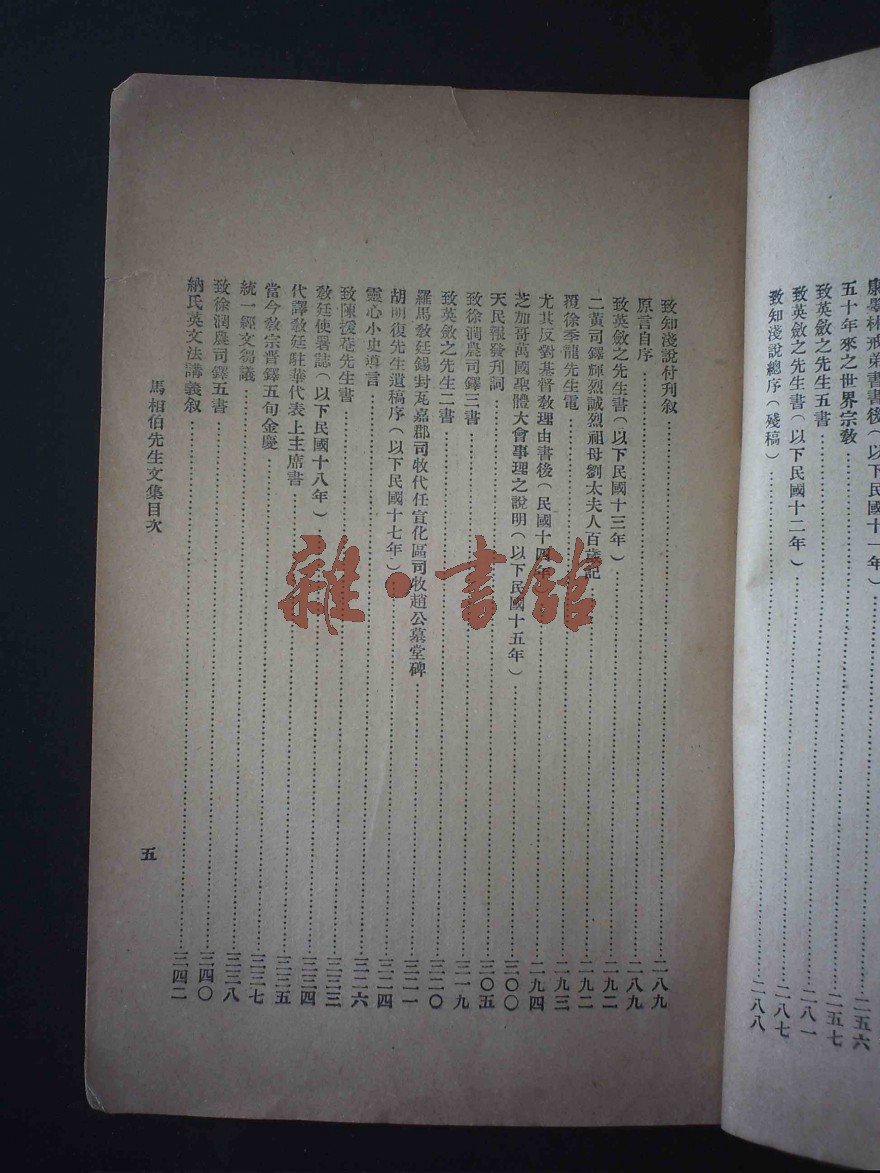 康墨林戒弟書書後(以下民國十一年)……二五六
五十年來之世界宗教……二五七
致英斂之先生五書……二八一
致英斂之先生書(以下民國十二年)……二八七
致知淺說總序(殘稿)……二八八
致知淺說付刊叙……二八九
原言自序……二八九
致英斂之先生書(以下民國十三年)……二九二
二黃司鐸輝烈誠烈祖母劉太夫人百歲記……二九二
覆徐季龍先生電……二九三
尤其反對基督敎理由書後(民國十四年)……二九四
芝加哥萬國聖體大會事理之說明(以下民國十五年)……三〇〇
天民報發刊詞……三〇五
致徐潤農司鐸三書……三一九
致英斂之先生二書……三二〇
羅馬敎廷錫封瓦嘉郡司牧代任宣化區司牧趙公墓堂碑……三二一
胡明復先生遺稿序(以下民國十七年)……三二四
靈心小史導言……三二六
致陳援菴先生書……三三三
敎廷使署誌(以下民國十八年)……三三四
代譯敎廷駐華代表上主席書……三三五
當今敎宗晋鐸五旬金慶……三三七
統一經文芻議……三三八
致徐潤農司鐸五書……三四〇
納氏英文法講義叙……三四二
馬相伯先生文集目次
五
雜·書館